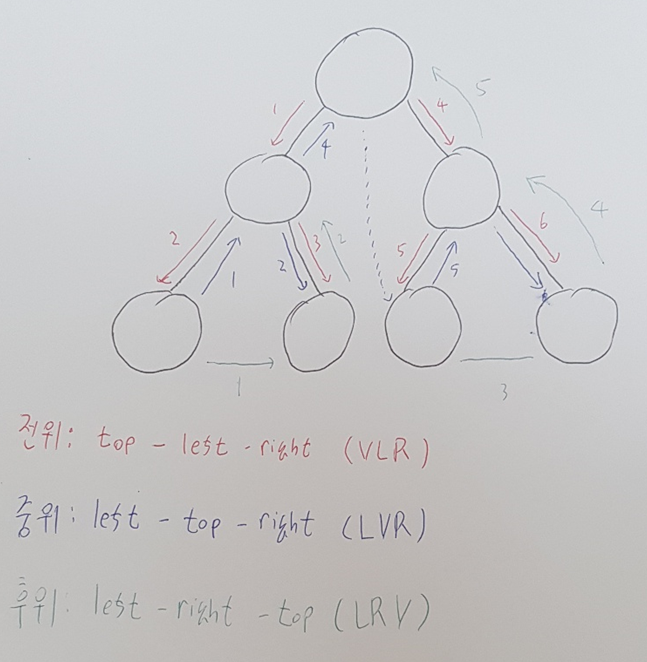 1
4
5
4
2
1
2
3
2
5
5
6
4
1
3
전위: top - left - right (VLR)
중위: left - top - right (LVR)
후위: left - right - top (LRV)